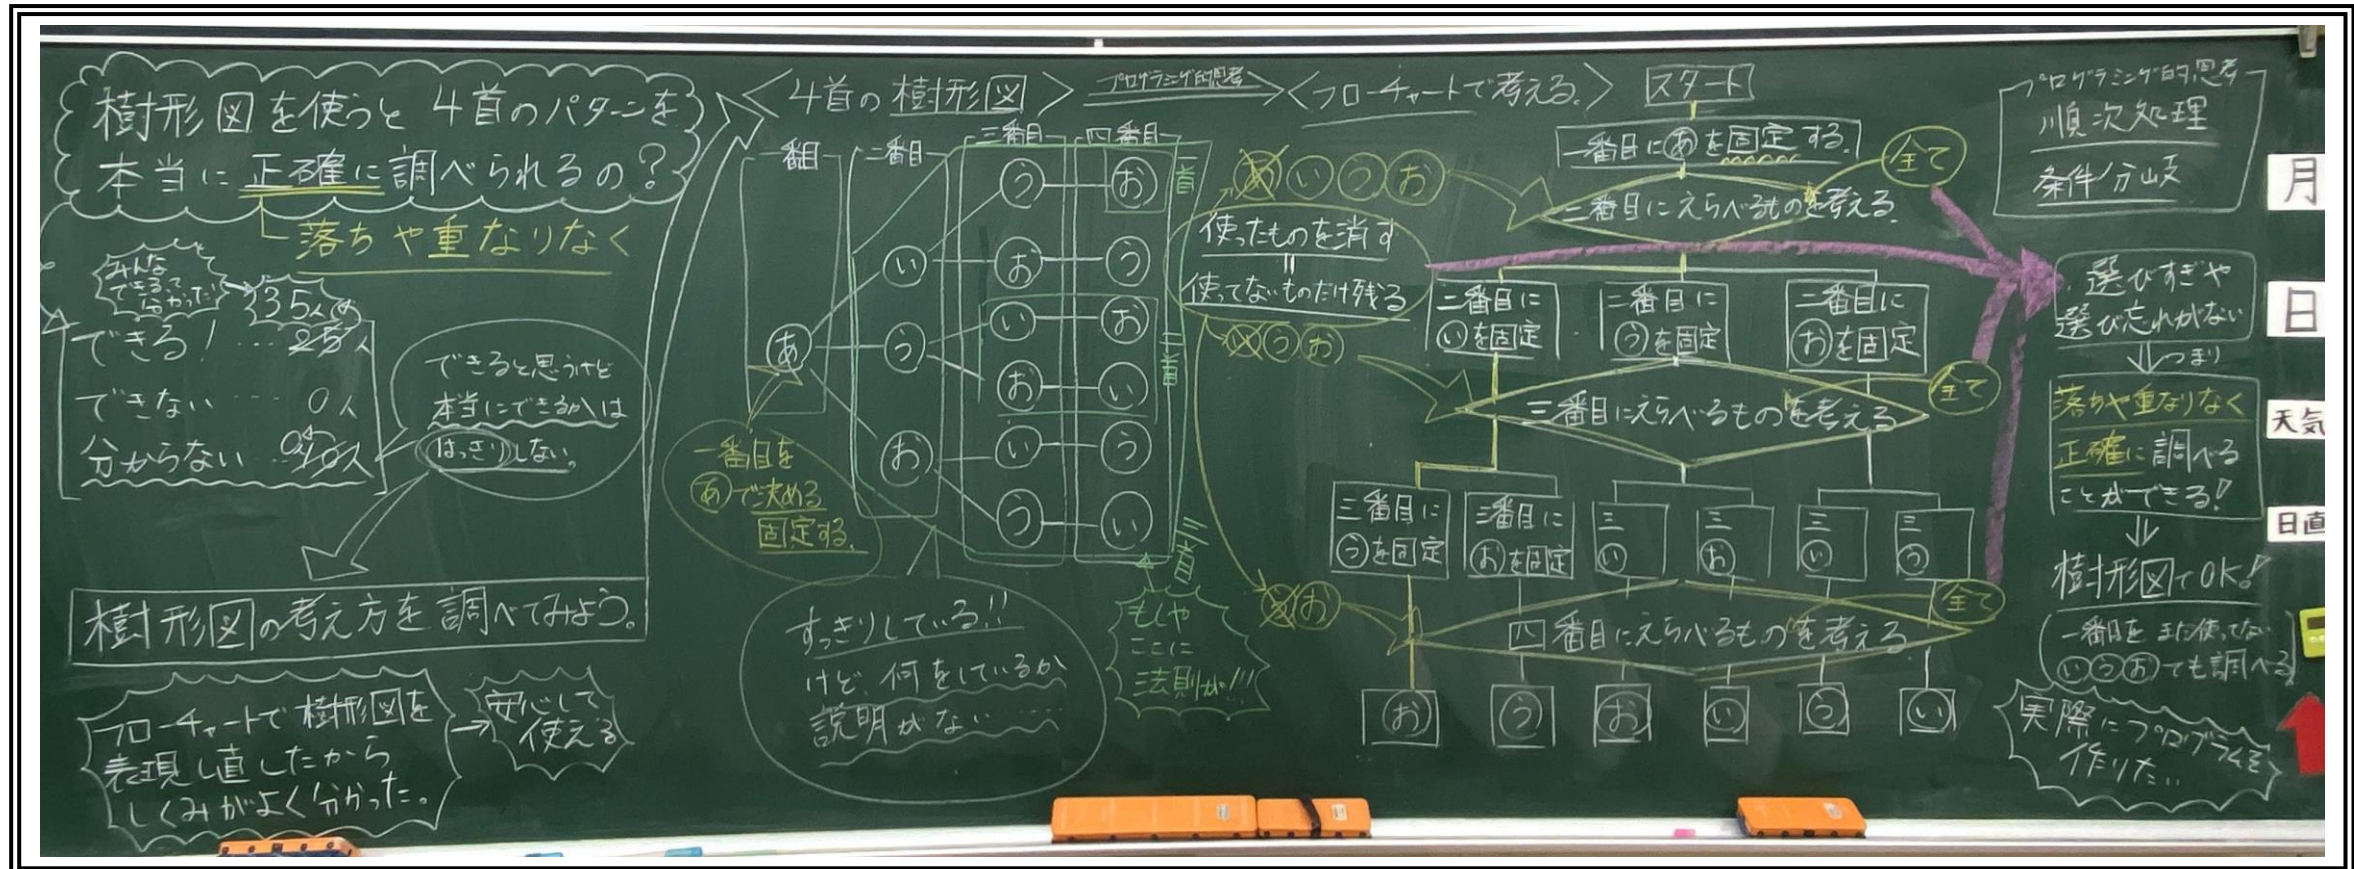 樹形図を使うと 4首のパターンを
本当に正確に調べられるの?
落ちや重なりなく
みんな
できるって
なかった!
35人
できる!…25人
できない…0人
分からない…
できると思うけど
本当にできるかは
はっきりしない。
樹形図の考え方を調べてみよう。
フローチャートで樹形図を
表現し直したから
しくみがよく分かった。
→安心して
使える
<4首の樹形図>
一番目
二番目
三番目
四番目
あ
い
う
お
う お
お う
い お
お い
い う
う い
一首
二首
三首
一番目を
あで決める
固定する。
すっきりしている!!
けど、何をしているか
説明がない……
もしや
ここに
法則が!!!
プログラミング的思考
<フローチャートで考える。>
スタート
一番目にあを固定する。
あ い う お
二番目にえらべるものを考える。
全て
使ったものを消す
=
使ってないものだけ残る
二番目に
いを固定
二番目に
うを固定
二番目に
おを固定
い う お
三番目にえらべるものを考える
全て
三番目に
うを固定
三番目に
おを固定
三
い
三
お
三
い
三
う
う お
四番目にえらべるものを考える
全て
お
う
お
い
う
い
プログラミング的思考
順次処理
条件分岐
選びすぎや
選び忘れがない
⇓つまり
落ちや重なりなく
正確に調べる
ことができる!
⇓
樹形図でOK!
(一番目をまだ使ってない
いうおでも調べる)
実際にプログラムを
作りたい
月
日
天気
日直